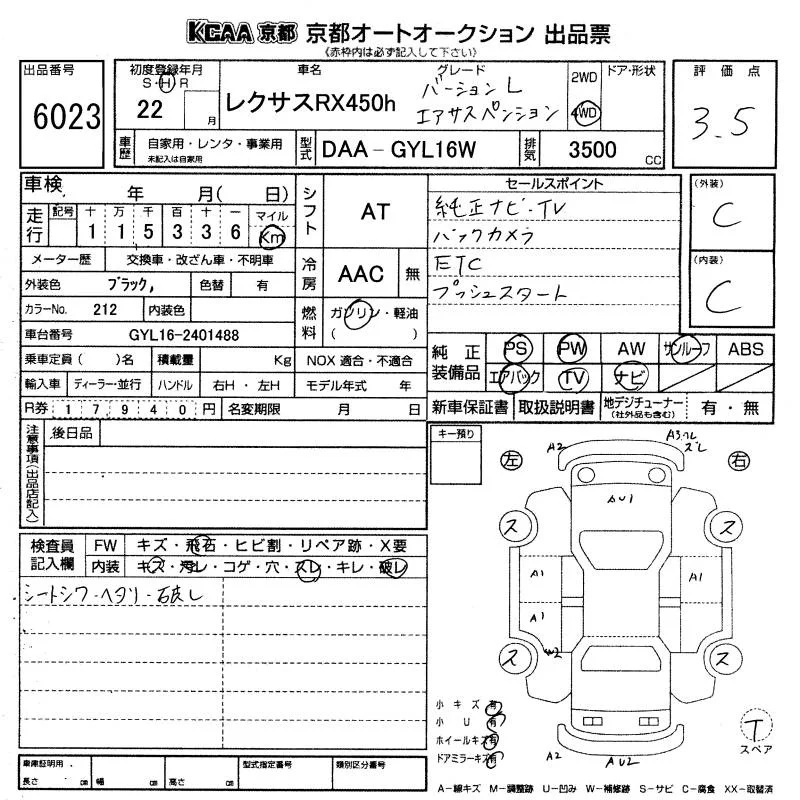 KCAA 京都 京都オートオークション 出品票
《赤枠内は必ず記入して下さい》
出品番号
6023
初度登録年月
S・H・R
22 月
車名
レクサスRX450h
グレード
バージョンL
エアサスペンション
2WD
4WD
ドア・形状
評価点
3.5
車歴
自家用・レンタ・事業用
未記入は自家用
型式
DAA-GYL16W
排気
3500 CC
車検 年 月( 日)
走行
記号 十 万 千 百 十 一 マイル
1 1 5 3 3 6 Km
メーター歴 交換車・改ざん車・不明車
外装色 ブラック, 色替 有
カラーNo. 212 内装色
車台番号 GYL16-2401488
乗車定員( )名 積載量 Kg
輸入車 ディーラー・並行 ハンドル 右H・左H
R券 1 7 9 4 0 円 名変期限 月 日
シフト AT
冷房 AAC 無
燃料 ガソリン・軽油
( )
NOX 適合・不適合
モデル年式 年
セールスポイント
純正ナビ・TV
バックカメラ
ETC
プッシュスタート
(外装)
C
(内装)
C
純正装備品
PS PW AW サンルーフ ABS
エアバック TV ナビ
新車保証書 取扱説明書 地デジチューナー (社外品も含む) 有・無
注意事項(出品店記入)
後日品
検査員記入欄
FW キズ・飛石・ヒビ割・リペア跡・X要
内装 キズ・汚レ・コゲ・穴・スレ・キレ・破レ
シートシワ・ヘタリ・破レ
キー預り
左
右
A2
A3.ヘレ
ズレ
AU1
ス
ス
A1
A1
A1
W2
ス
ス
小キズ 有
小U 有
ホイールキズ 有
ドアミラーキズ 有
A2
AU2
T
スペア
車庫証明用
長さ cm 幅 cm 高さ cm
型式指定番号
類別区分番号
A-線キズ M-調整跡 U-凹み W-補修跡 S-サビ C-腐食 XX-取替済